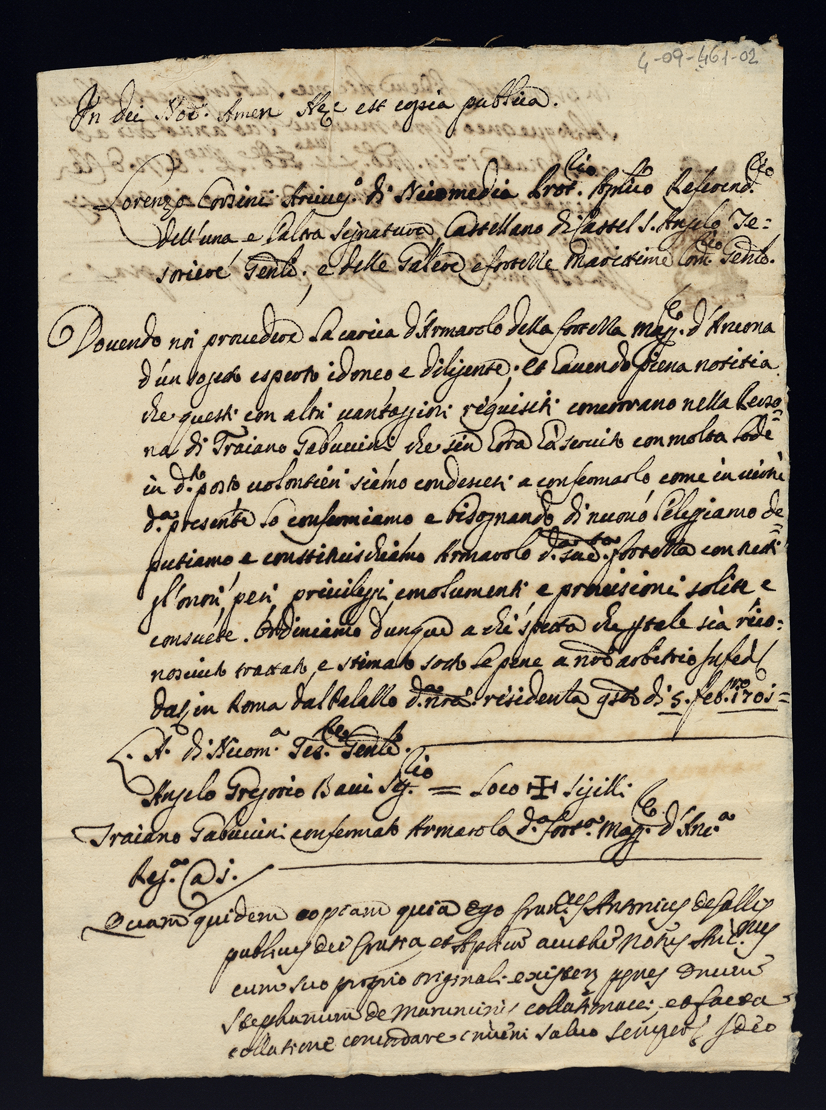 4-09-461-02
In Dei Noe. Amen Hęc est copia publica.
Lorenzo Corsini Arcives.o di Nicomedia Prot.rio Aplico Referend.rio
dell'una e l'altra Segnatura Castellano di Castel S. Angelo Te=
soriere Genle. e delle Galere e fortezze Marittime Com.rio Genle.
Dovendo noi provedere la carica d'Armarolo della fortezza Mag.re d'Ancona
d'un sogetto esperto idoneo e diligente. et havendo piena notitia
che questi con altri vantaggiosi requisiti concorrano nella Perso=
na di Traiano Gabuccini che sin hora hà servito con molta lode
in d.to posto volontieri siamo condesceti a confermarlo come in virtù
d.a presente lo confermiamo e bisognando di nuovo l'elegiamo de=
putiamo e constituischiamo Armarolo d. fortezza con tutti
gl'onori pesi privilegi emolumenti e provisioni solite e
consuete. Ordiniamo dunque a chi spetta che p tale sia rico=
nosciuto trattato, e stimato sotto le pene a nro arbitrio In fede
dat. in Roma dal Palazzo d. nra residenza qsto di 5. feb.ro 1701=
L. A. di Nicom.a Tes.re Genle.
Angelo Gregorio Bavi Seg.rio = Loco ✠ Sigilli
Traiano Gabuccini confermato Armarolo d.a fort.a Mag.re d'Anc.a
Reg.a @ 1.
Quam quidem copiam quia ego Antonius de
publicus Dei gratia et Aplica aucthe Notus
cum suo proprio originali existen penes
Stephanum de Maruncinis collationavi, et facta
collatione concordare inveni salvo semper Ideo